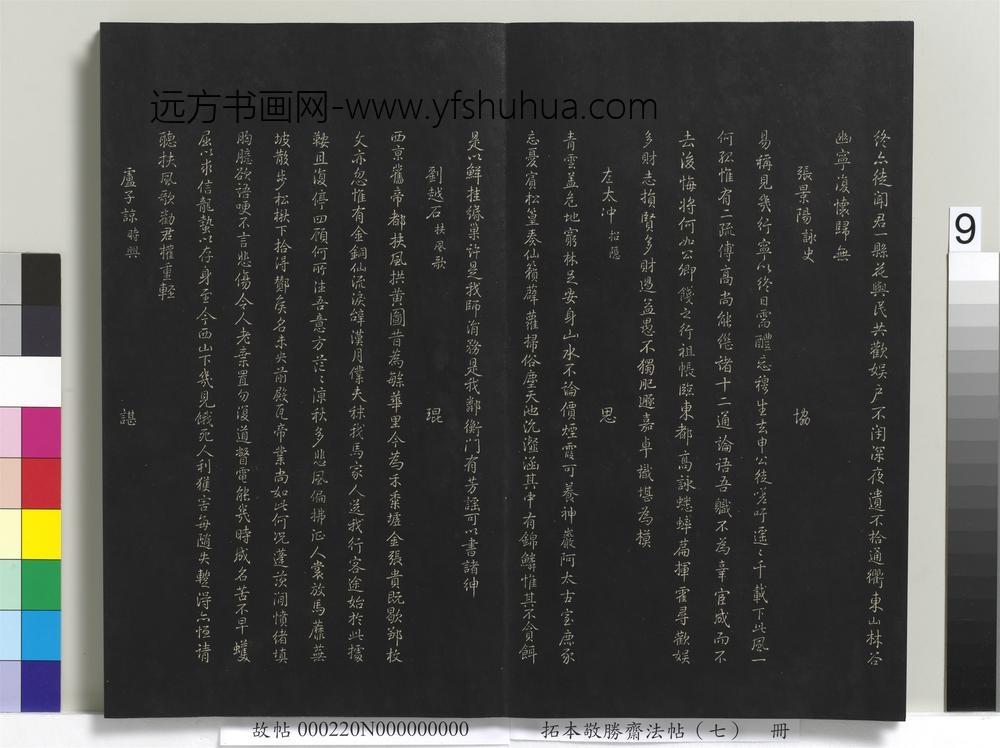 远方书画网-www.yfshuhua.com
終亦徒聞君一縣花與民共歡娛戶不闭深夜遺不拾通衢東山林谷
幽寧復懷歸無
張景陽詠史 協
易稱見幾行寧以終日需醴忘穆生去申公徒寃吁遥々千載下此風一
何孤惟有二疏傅高尚能繼諸十二通論語吾職不為辜宦成而不
去後悔將何如公卿餞之行祖帳臨東都高詠蟋蟀篇揮霍尋歡娛
多財志損賢多財過益愚不獨肥遯嘉卓識堪為模
左太冲 招隱 思
青雲蓋危地窮林足安身山水不論價煙霞可養神巖阿太古室鹿豕
忘憂賓松篁奏仙籟薜蘿掃俗塵天池沉瀣涵其中有錦鱗惟其不貪餌
是以鮮挂緣巢許是我師消務是我鄰衡門有芳謡可以書諸紳
劉越石 扶風歌 琨
西京舊帝都扶風拱黄圖昔為蘇華里今為禾黍墟金張貴既歇鄒枚
文亦忽惟有金銅仙流淚辭漢月僕夫秣我馬家人送我行客途始於此據
鞍且復停四顧何所往吾意方茫々涼秋多悲風偏拂征人裳放馬蘼蕪
坡散步松栱下拾得鄼矦名未央前殿瓦帝業尚如此何况蓬茨间憤绪填
胸臆欲語哽不言悲傷令人老棄置勿復道督電能幾時成名苦不早蠖
屈以求信龍蟄以存身至今西山下幾見餓死人利獲害每隨失暫得亦恒请
聽扶風歌勸君權重輕
盧子諒 時興 諶
9
故帖 000220N000000000
拓本敬勝齋法帖（七） 冊